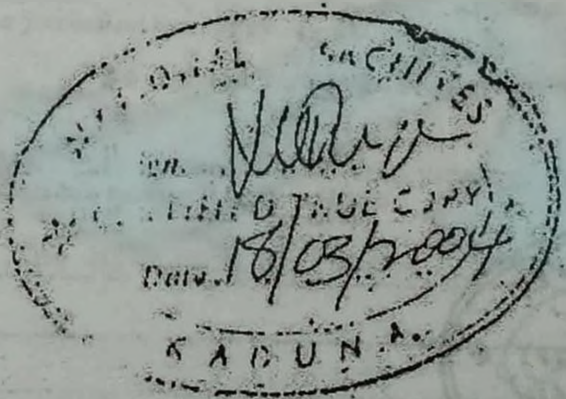 NATIONAL ARCHIVES
Sign.
CERTIFIED TRUE COPY
Date. 18/03/2004
KADUNA